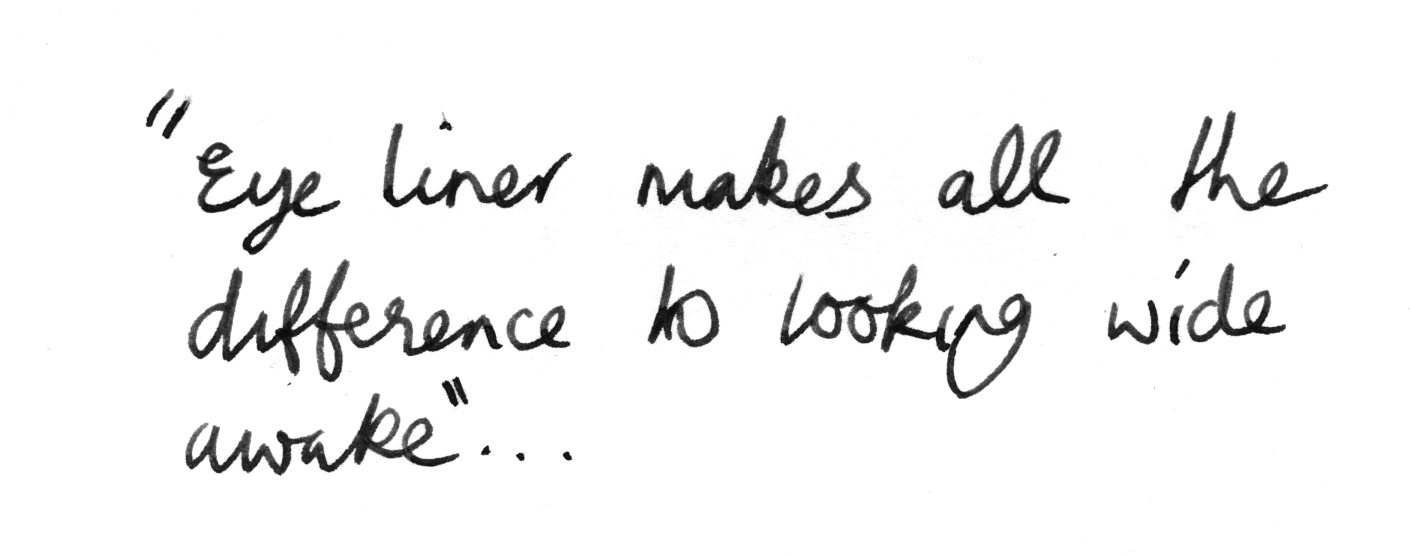 "Eye liner makes all the
difference to looking wide
awake"...